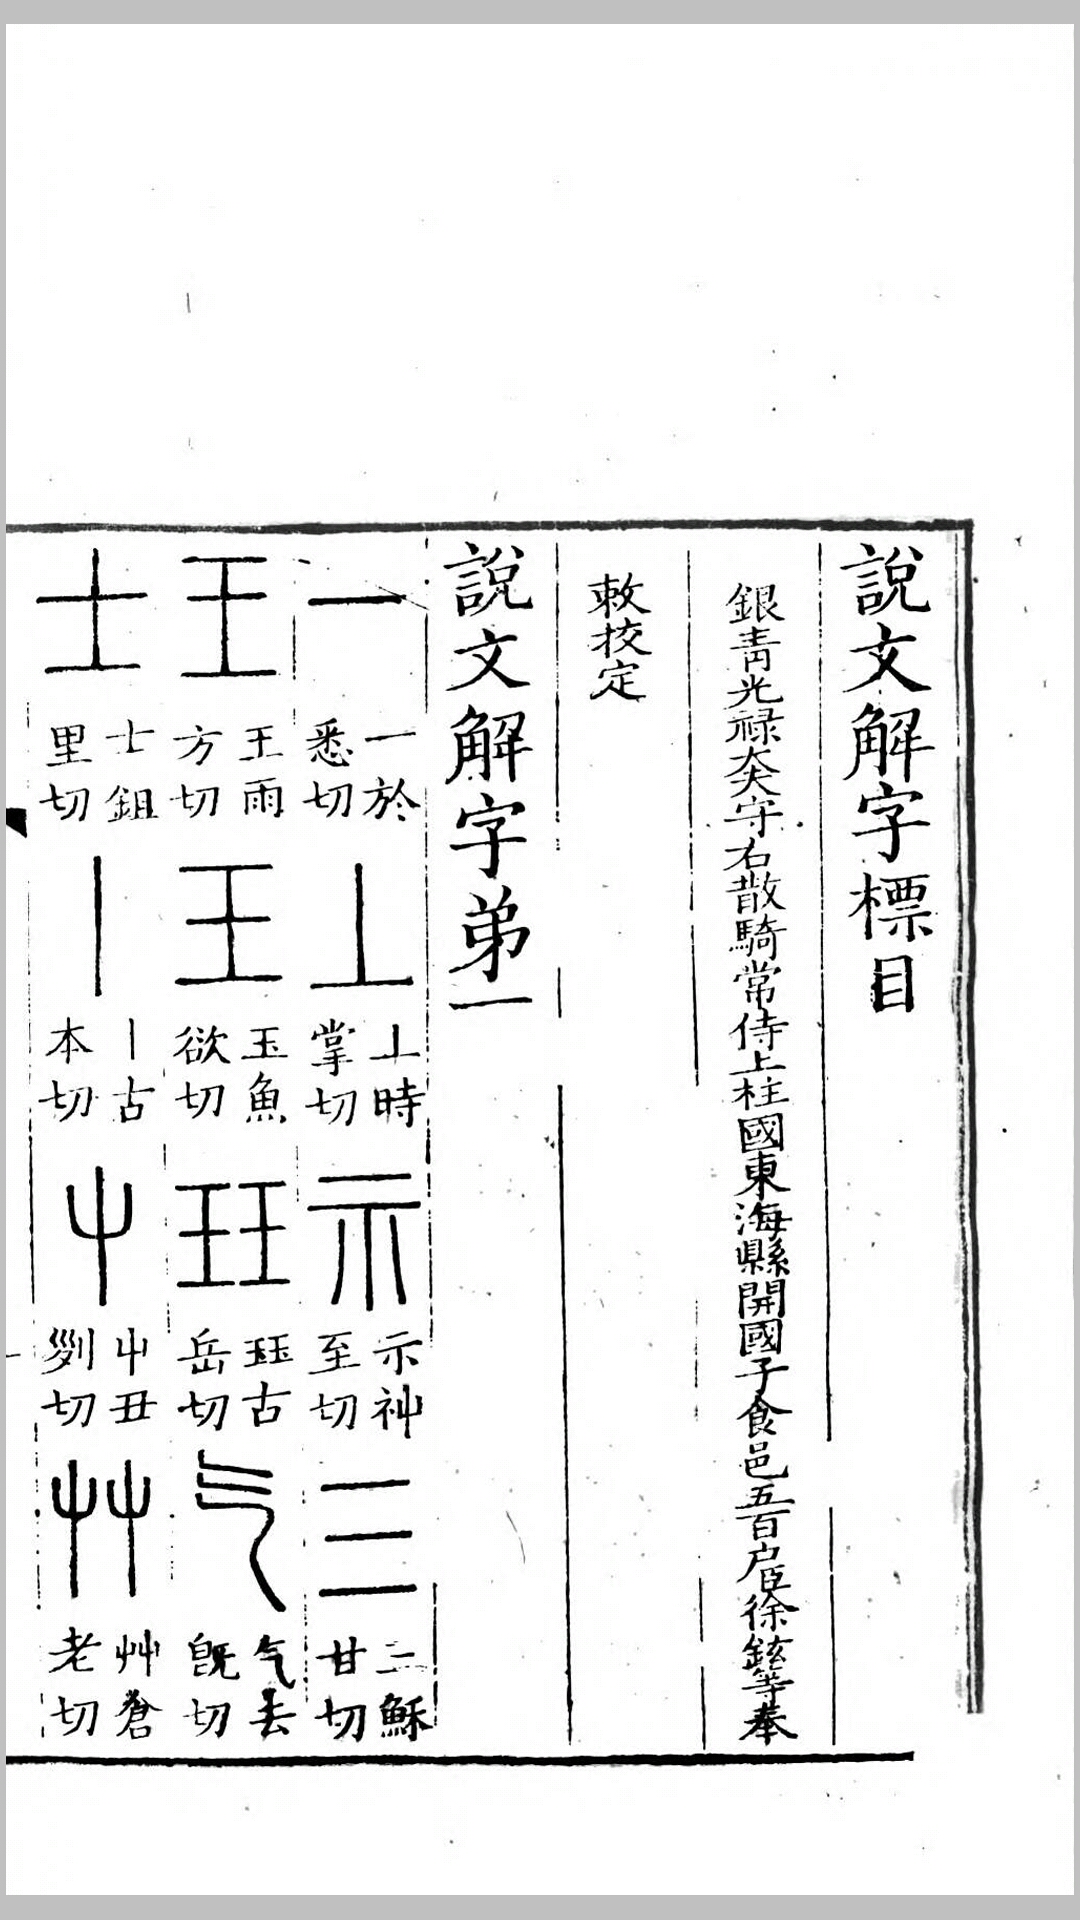 說文解字標目
銀青光祿大夫守右散騎常侍上柱國東海縣開國子食邑五百戶臣徐鉉等奉
敕校定
說文解字弟一
一 一於悉切 丄 丄時掌切 示 示神至切 三 三穌甘切
王 王雨方切 王 玉魚欲切 玨 玨古岳切 气 气去旣切
士 士鉏里切 丨 丨古本切 屮 屮丑列切 艸 艸倉老切